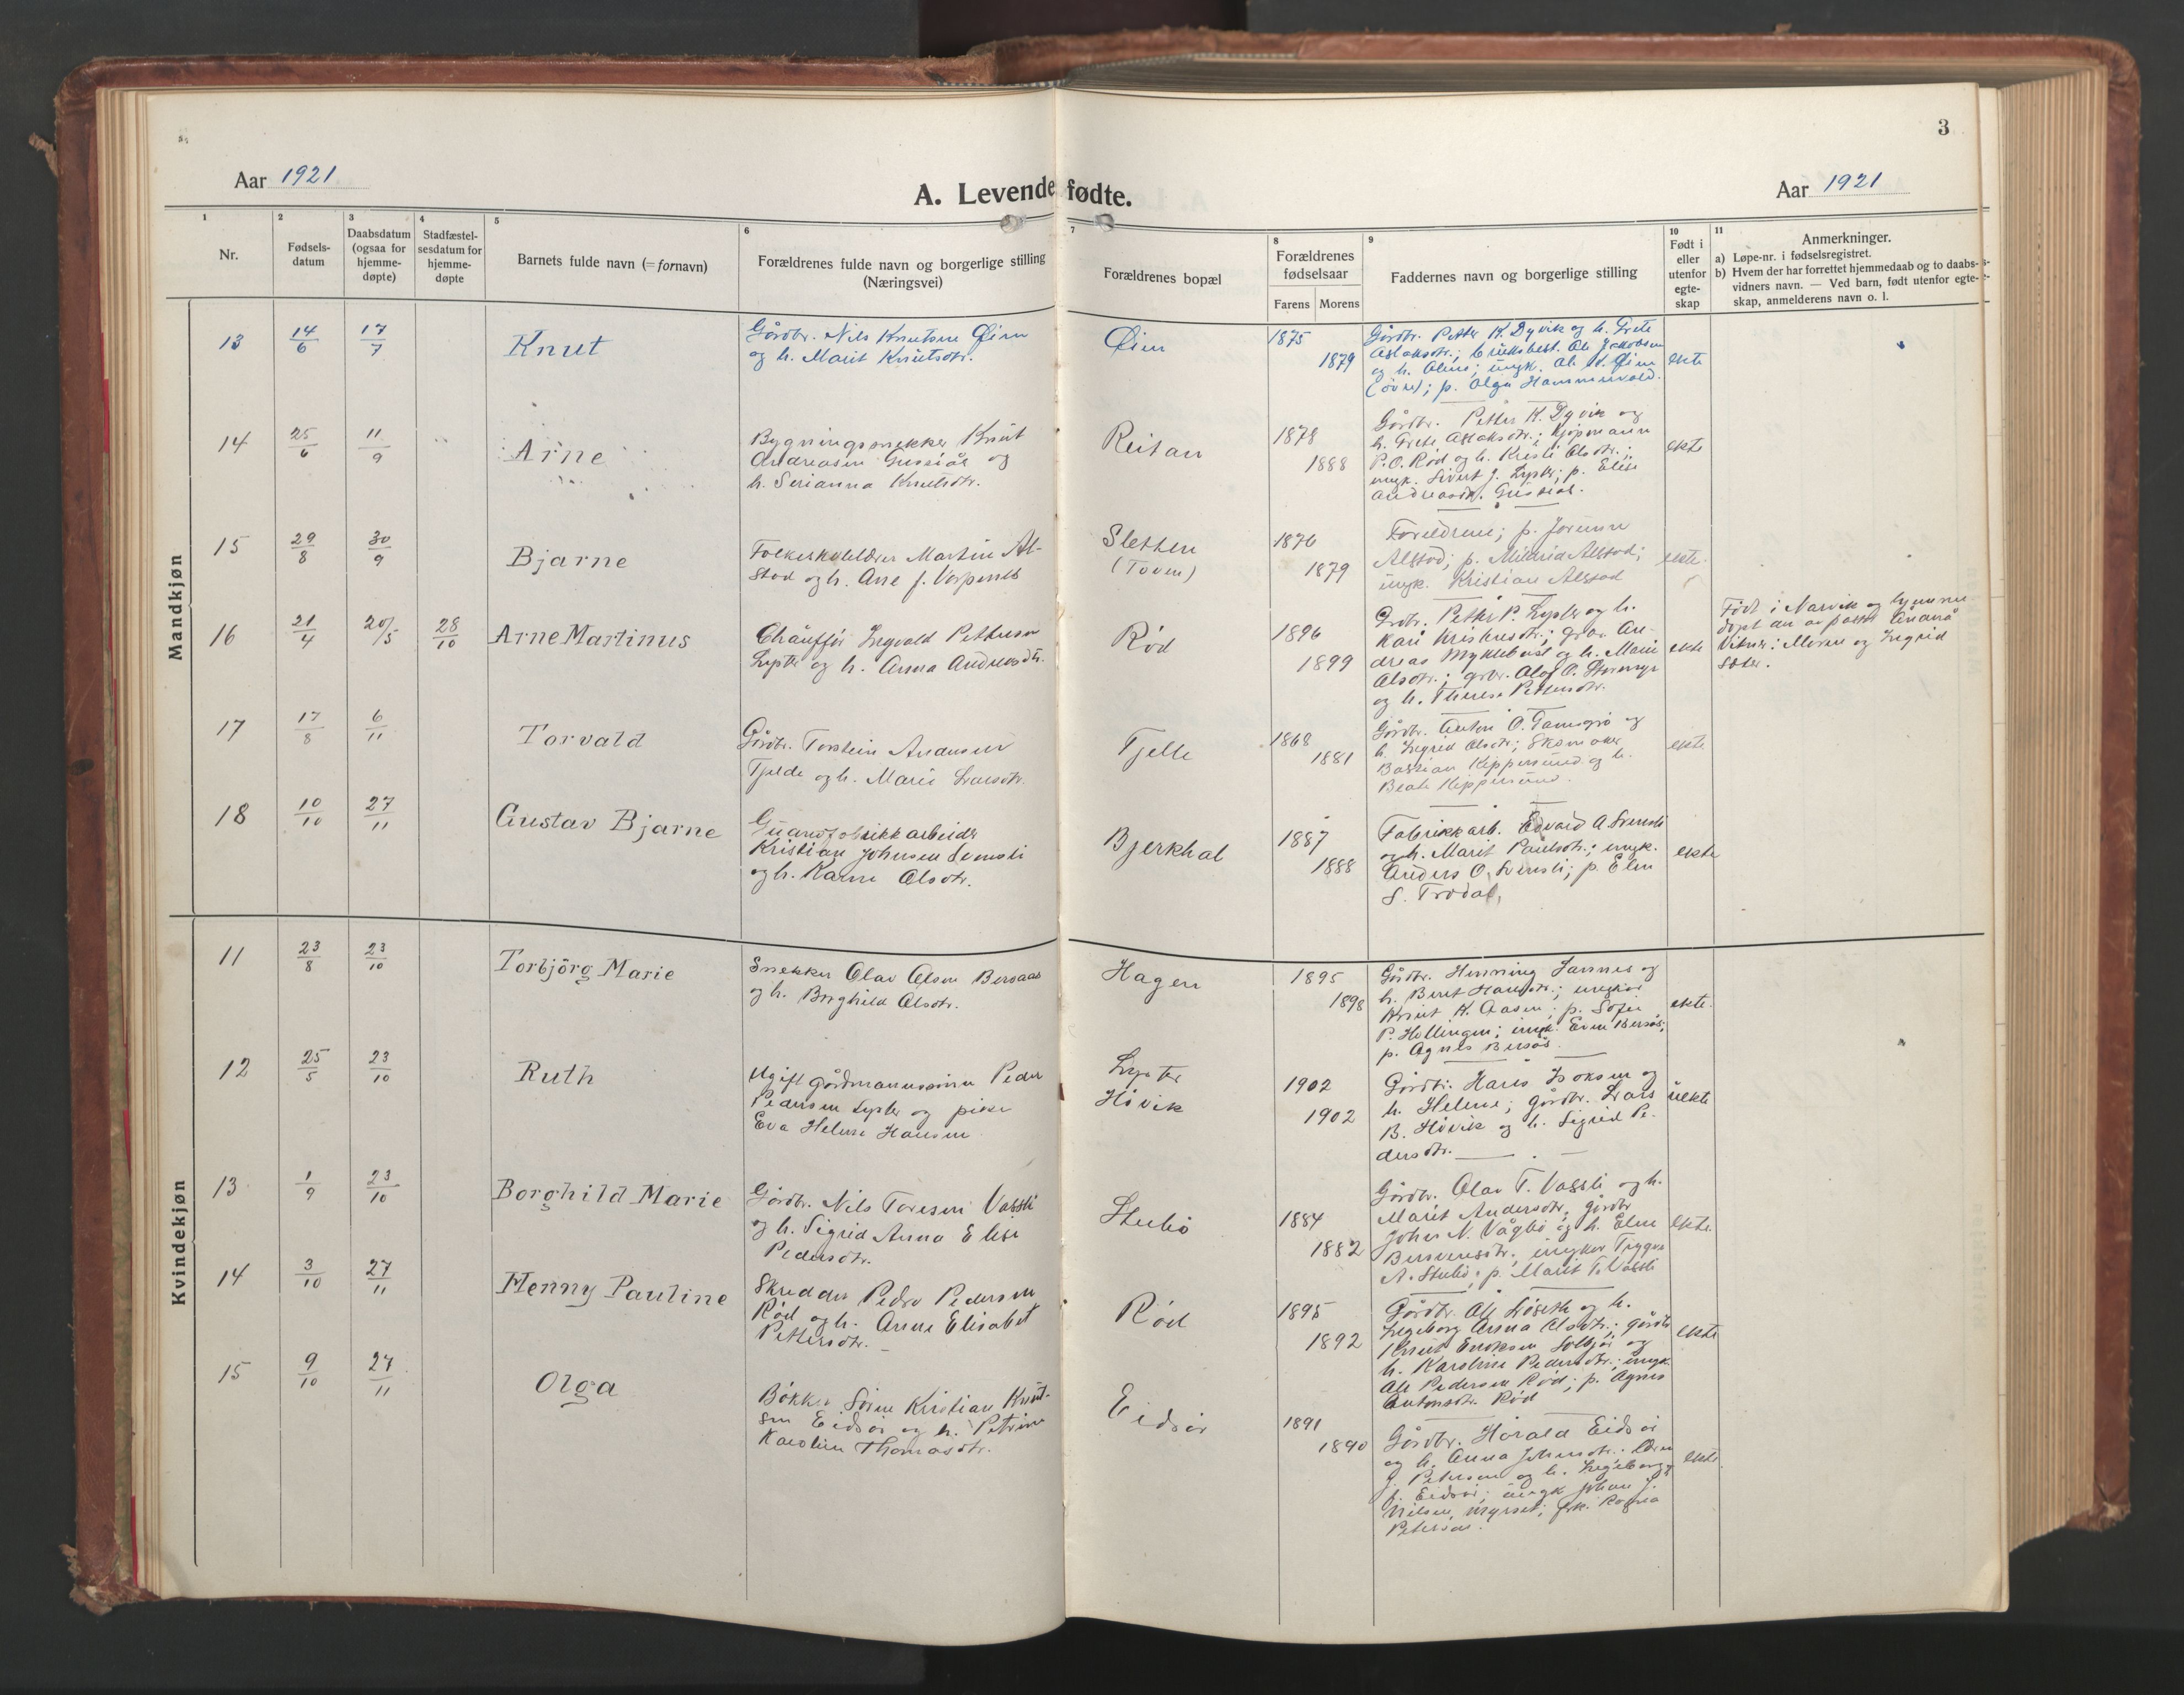 3
Aar 1921
A. Levende fødte.
Aar 1921
1
Nr.
2
Fødsels-
datum
3
Daabsdatum
(ogsaa for
hjemme-
døpte)
4
Stadfæstel-
sesdatum for
hjemme-
døpte
5
Barnets fulde navn (= fornavn)
6
Forældrenes fulde navn og borgerlige stilling
(Næringsvei)
7
Forældrenes bopæl
8
Forældrenes
fødselsaar
Farens Morens
9
Faddernes navn og borgerlige stilling
10
Født i
eller
utenfor
egte-
skap
11
Anmerkninger.
a) Løpe-nr. i fødselsregistret.
b) Hvem der har forrettet hjemmedaab og to daabs-
vidners navn. — Ved barn, født utenfor egte-
skap, anmelderens navn o. l.
Mandkjøn
13
14/6
17/7
Knut
Gårdbr. Nils Knutsen Øien
og h. Marit Knutsdtr.
Øien
1875
1879
Gårdbr. Petter K. Dyvik og h. Grete
Aslaksdtr.; Ole Jakobsen
og h. ungk. Ole Øien
(øvre); p. Olga Hammervold.
ekte
14
25/6
11/9
Arne
Bygningssnekker Knut
Andreasen Gussiås og
h. Serianna Knutsdtr.
Reitan
1878
1888
Gårdbr. Petter K. Dyvik og
h. Grete Aslaksdtr.; kjøpmann
P.O. Rød og h. Kristi Olsdtr.;
ungk. Sivert J. Lyster; p. Elise
Andreasdtr. Gussiås.
ekte
15
29/8
30/9
Bjarne
Folkeskolelærer Martin Al-
stad og h. Ane f. Vorpenes
Sletten
(Toven)
1876
1879
Foreldrene; p. Jorunn
Alstad; p. Mildrid Alstad;
ungk. Kristian Alstad
ekte.
16
21/4
20/5
28/10
Arne Martinus
Chauffør Ingvald Pettersen
Lyster og h. Anna Andreasdtr.
Rød
1896
1899
Grdbr. Petter P. Lyster og h.
Kari grbr. An-
dreas Myklebust og h. Marie
Olsdtr.; grbr. Olaf O.
og h. Therese Pettersdtr.
ekte
Født i Narvik og hjemme
døpt av
Vitner: Moren og Ingrid
Sæter.
17
17/8
6/11
Torvald
Gårdbr. Torstein Andersen
Tjelde og h. Marie Larsdtr.
Tjelle
1868
1881
Gårdbr. Anton O. og
h. Ingrid Olsdtr; Skomaker
Bastian Keppersund og h.
Beate Keppersund.
ekte
18
10/10
27/11
Gustav Bjarne
Guanofabrikkarbeider
Kristian Johnsen Svensli
og h. Karen Olsdtr.
Bjerkhal
1887
1888
Fabrikkarb. Edvard A. Svensli
og h. Marit Paulsdtr.; ungk.
Anders O. Svensli; p. Elen
S. Trodal,
ekte
Kvindekjøn
11
23/8
23/10
Torbjörg Marie
Snekker Olav Olsen Bersaas
og h. Borghild Olsdtr.
Hagen
1895
1898
Gårdbr. Henning Sannes og
h. Beret Hansdtr.; ungkar
Knut K. Aasen; p. Sofie
P. Hellingen; ungk. Even Bersås;
p. Agnes Bersås.
ekte.
12
25/5
23/10
Ruth
Ugift gårdmannssønn Peder
Pedersen Lyster og pike
Eva Helene Hansen
Lyster
Hövik
1902
1902
Gårdbr. Hans Isaksen og
h. Helene; gårdbr. Lars
B. Hövik og h. Sigrid Pe-
dersdtr.
uekte
13
1/9
23/10
Borghild Marie
Gårdbr. Nils Toresen Vassli
og h. Sigrid Anna Elise
Pedersdtr.
Stubö
1884
1882
Gårdbr. Olav T. Vassli og h.
Marit Andersdtr, gårdbr
Johan N. Vågbö og h. Elen
ungkar Trygve
A. Stubö; p. Marit T. Vassli
ekte.
14
3/10
27/11
Henny Pauline
Skredder Peder Pedersen
Rød og h. Anne Elisabet
Pettersdtr.
Rød
1895
1892
Gårdbr. Ole Löseth og h.
Ingeborg Anna Olsdtr.; gårdbr
Knut Eriksen Solbjør og
h. Karoline Pedersdtr.; ungk.
Ole Pedersen Rød; p. Agnes
Antonsdtr. Rød
ekte
15
9/10
27/11
Olga
Bökker Sören Kristian Knut-
sen Eidsör og h. Petrine
Karoline Thomasdtr.
Eidsör
1891
1890
Gårdbr. Harald Eidsör
og h. Anna Johansdtr.;
J. Petersen og h. Ingeborg
f. Eidsör; ungk Johan J.
Nilsen, Myrset; frk. Ragna
Petersen.
ekte.